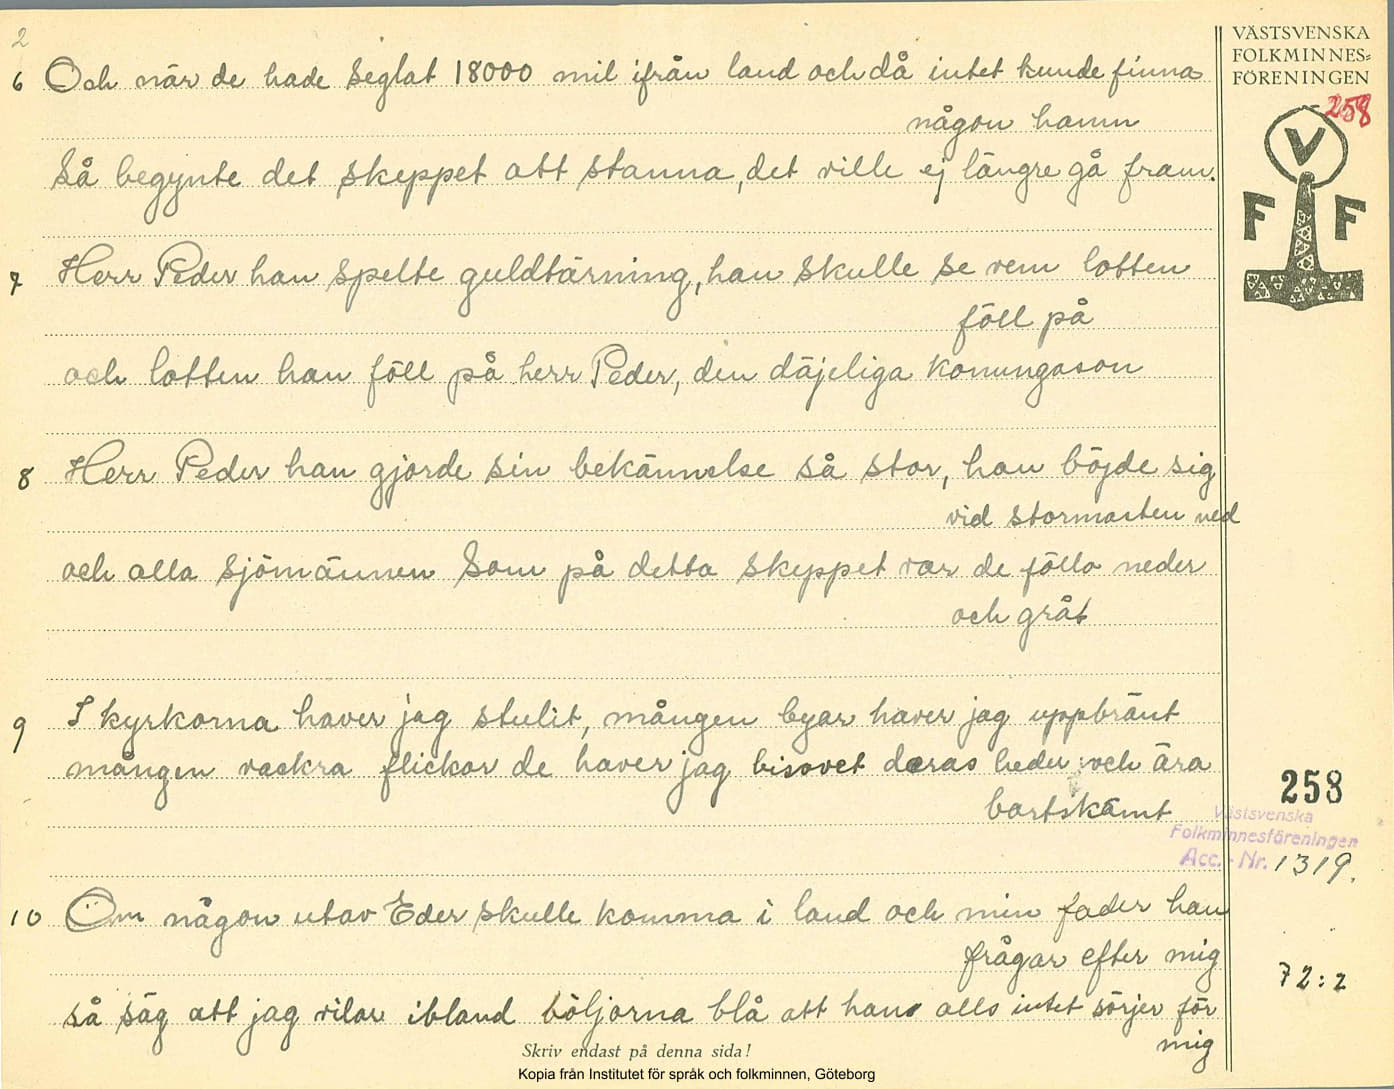 2
VÄSTSVENSKA
FOLKMINNES=
FÖRENINGEN
258
V
F F
6 Och när de hade seglat 18000 mil ifrån land och då intet kunde finna
någon hamn
Så begynte det skeppet att stanna, det ville ej längre gå fram.
7 Herr Peder han spelte guldtärning, han skulle se vem lotten
föll på
och lotten han föll på herr Peder, den däjeliga konungason
8 Herr Peder han gjorde sin bekännelse så stor, han böjde sig
vid stormasten ned
och alla sjömännen som på detta skeppet var de föllo neder
och gråt
9 I kyrkorna haver jag stulit, mången byar haver jag uppbränt
mången vackra flickor de haver jag bisovet deras heder och ära
bortskämt
258
Västsvenska
Folkminnesföreningen
Acc. - Nr. 1319.
10 Om någon utav Eder skulle komma i land och min fader han
frågar efter mig
så säg att jag vilar ibland böljorna blå att han alls intet sörjer för
mig
72:2
Skriv endast på denna sida!
Kopia från Institutet för språk och folkminnen, Göteborg